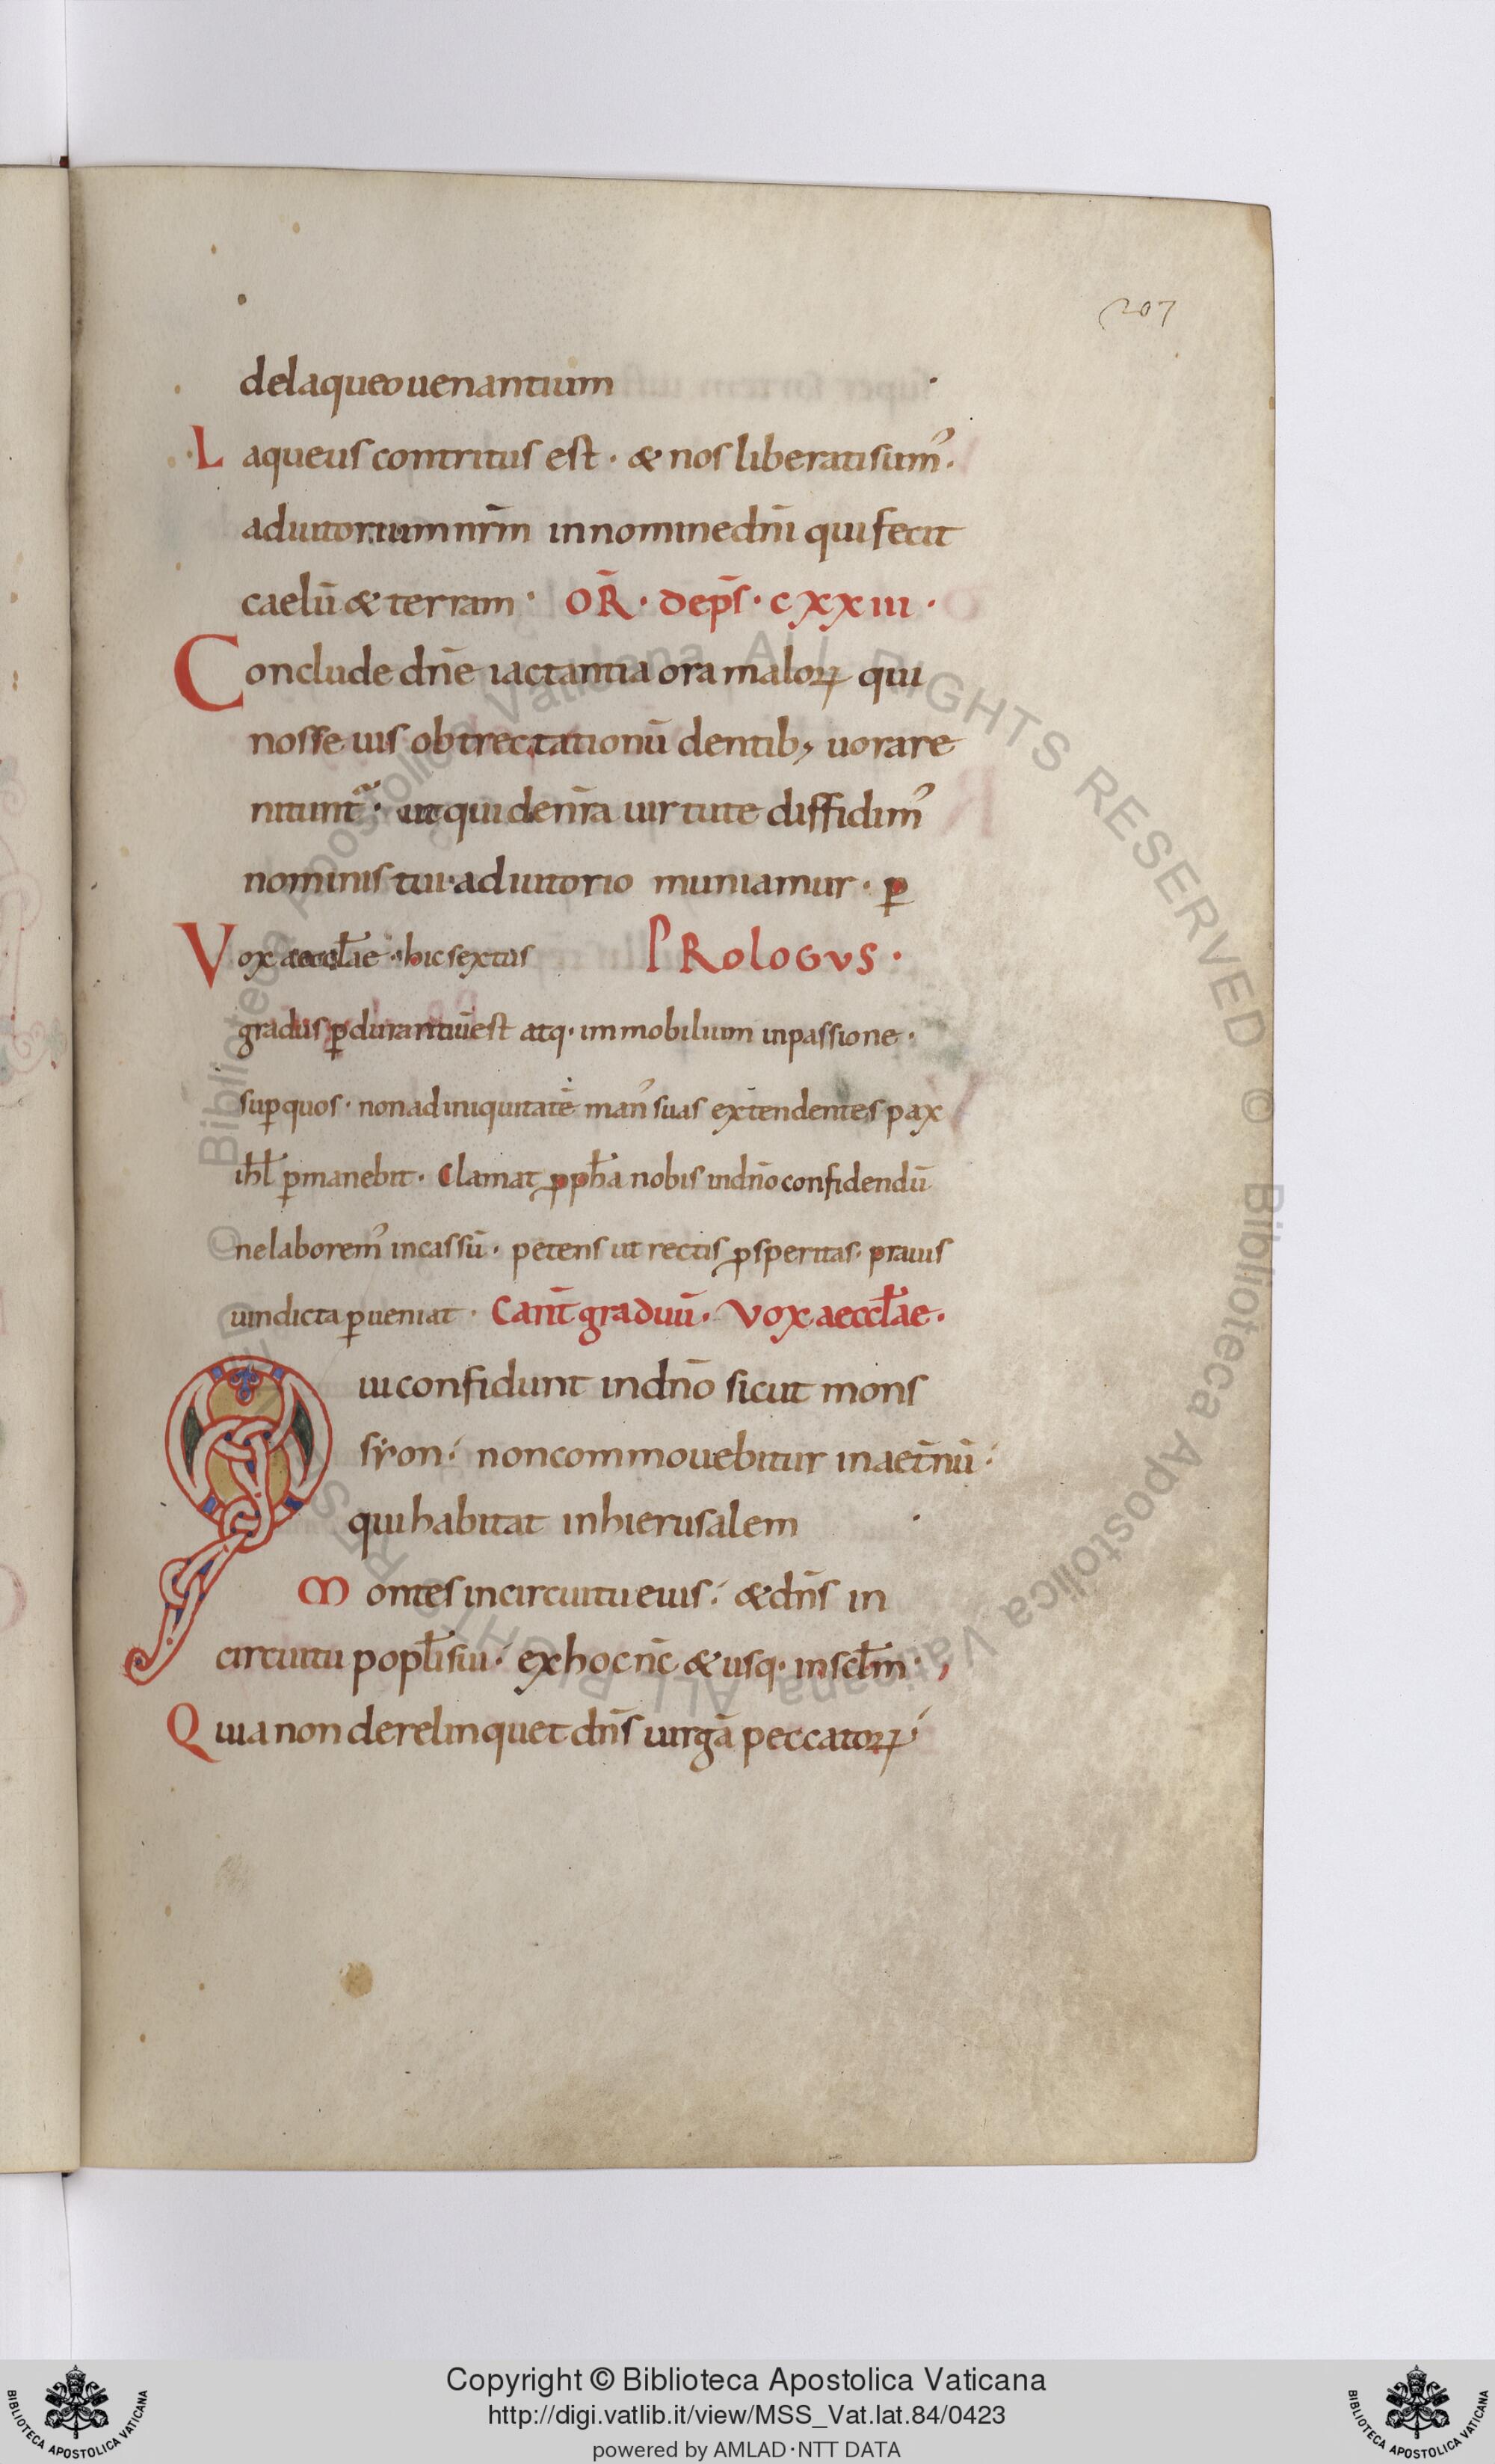 207
delaqueouenantium ·
Laqueus contritus est · & nos liberatisum᾽.
adiutorium nr̄m innomine dn̄i qui fecit
caelū & terram · OR̄ · de ps̄ · cxxiii ·
Conclude dn̄e iactantia ora maloꝝ qui
nosse uis obtrectationū dentib; uorare
nitunt᷒ · ut qui denr̄a uirtute diffidim᾽
nominis tui · adiutorio muniamur · ꝑ
Vox aeccl̄ae · hic sextus PRoloGVS ·
gradus ꝑdurantiū est atq · immobilium inpassione ·
suꝑquos · nonad iniquitatē man᾽ suas extendentes pax
ihl̄ ꝑmanebit · Clamat ꝓph̄a nobis indn̄o confidendū
nelaborem᾽ incassū · petens ut rectis ꝓsperitas · prauis
uindicta ꝑueniat · Cant̄ graduū · Vox aeccl̄ae ·
Qui confidunt indn̄o sicut mons
syon · noncommouebitur inaet̄nū ·
qui habitat inhierusalem ·
Montes incircuitu eius · & dn̄s in
circuitu popl̄i sui · exhoc nc̄ & usq · inscl̄m ·
Quia non derelinquet dn̄s uirgā peccatoꝝ
© Biblioteca Apostolica Vaticana ALL RIGHTS RESERVED
© Biblioteca Apostolica Vaticana ALL RIGHTS RESERVED
BIBLIOTECA APOSTOLICA VATICANA
Copyright © Biblioteca Apostolica Vaticana
http://digi.vatlib.it/view/MSS_Vat.lat.84/0423
powered by AMLAD·NTT DATA
BIBLIOTECA APOSTOLICA VATICANA